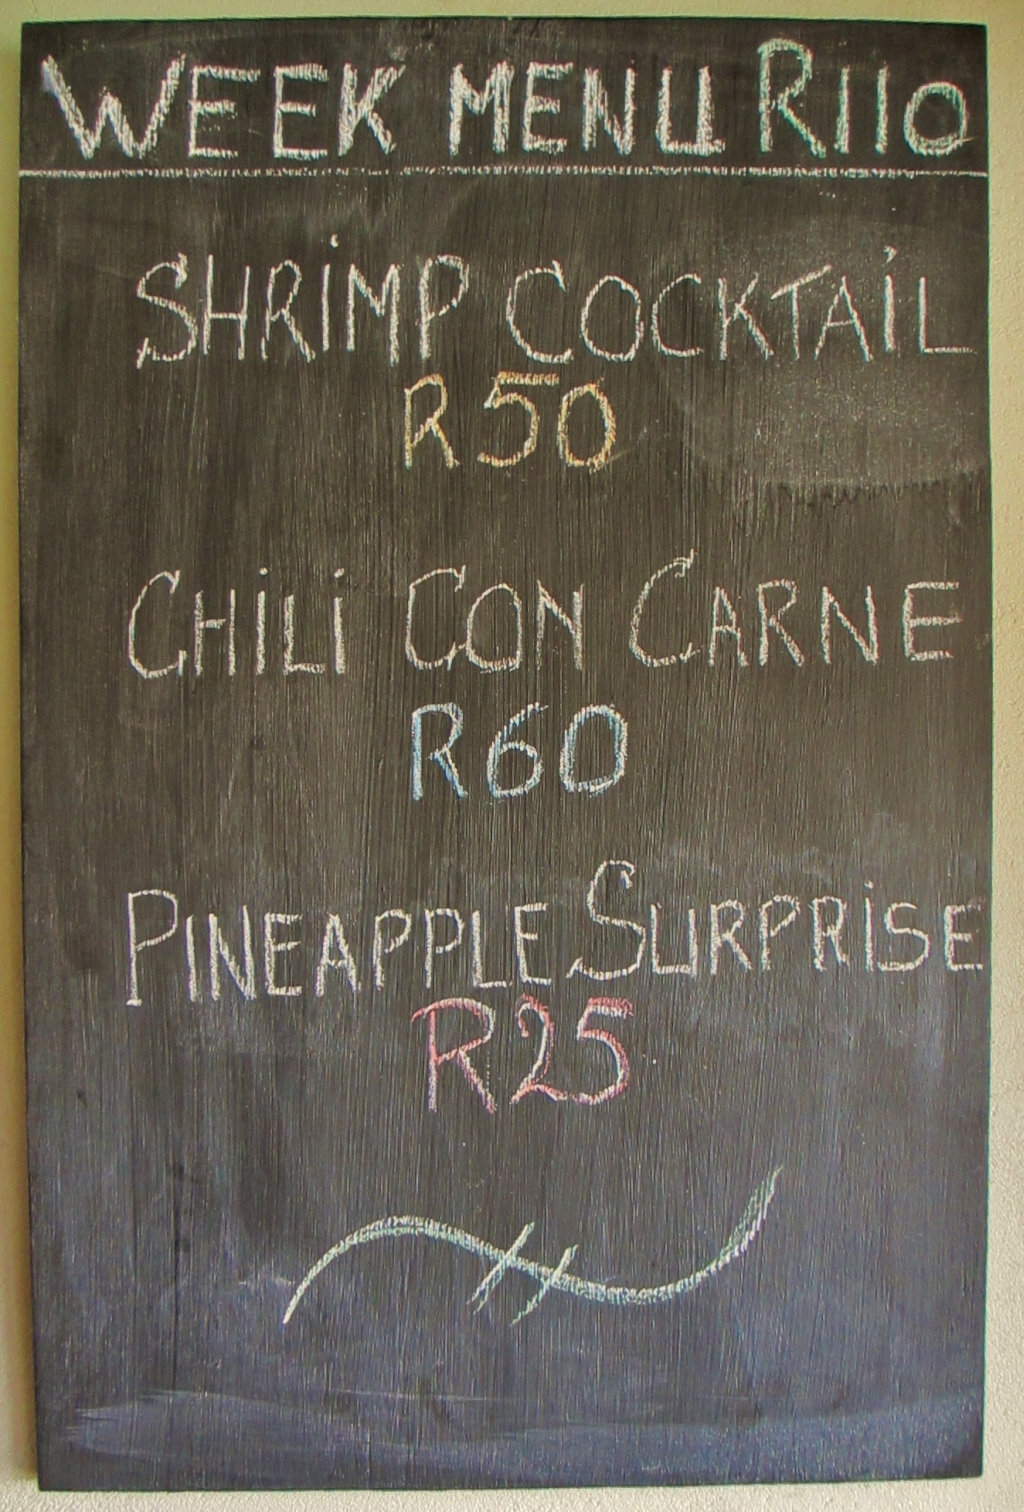 WEEK MENU R110
SHRIMP COCKTAIL
R50
CHILI CON CARNE
R60
PINEAPPLE SURPRISE
R25